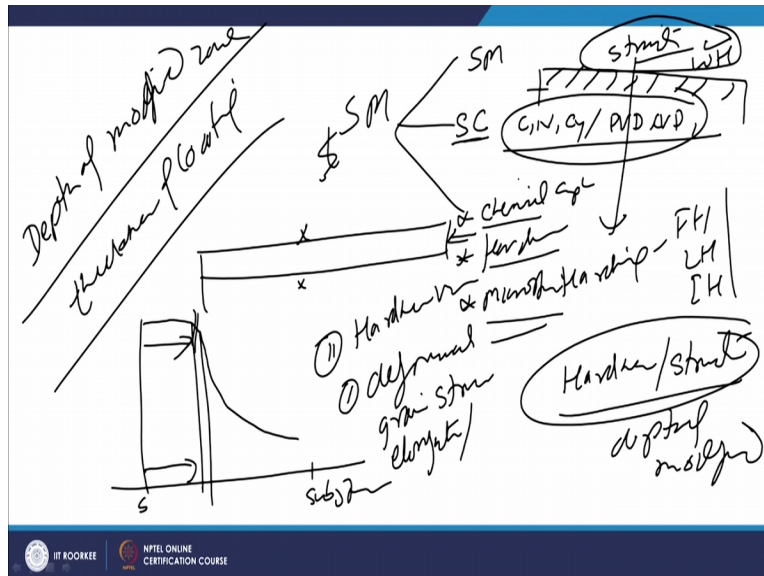 Depth of modified zone
thickness of coating
SM
SM
SC
C, N, Cy / PVD
struct
WH
* chemical
* Hardn
* Micro Hardening -
FH
LH
IH
II Hardness
I deformed
grain struc
elongated
Hardness / struct
depth of
modified
S
substrate
IIT ROORKEE
NPTEL ONLINE
CERTIFICATION COURSE